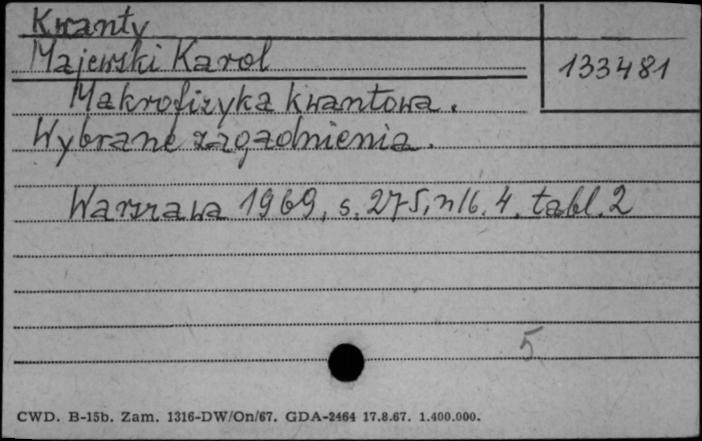 Kwanty
Majewski Karol
133481
Makrofizyka kwantowa.
Wybrane zagadnienia.
Warszawa 1969, s. 275, nlb. 4, tabl. 2
5
CWD. B-15b. Zam. 1316-DW/On/67. GDA-2464 17.8.67. 1.400.000.